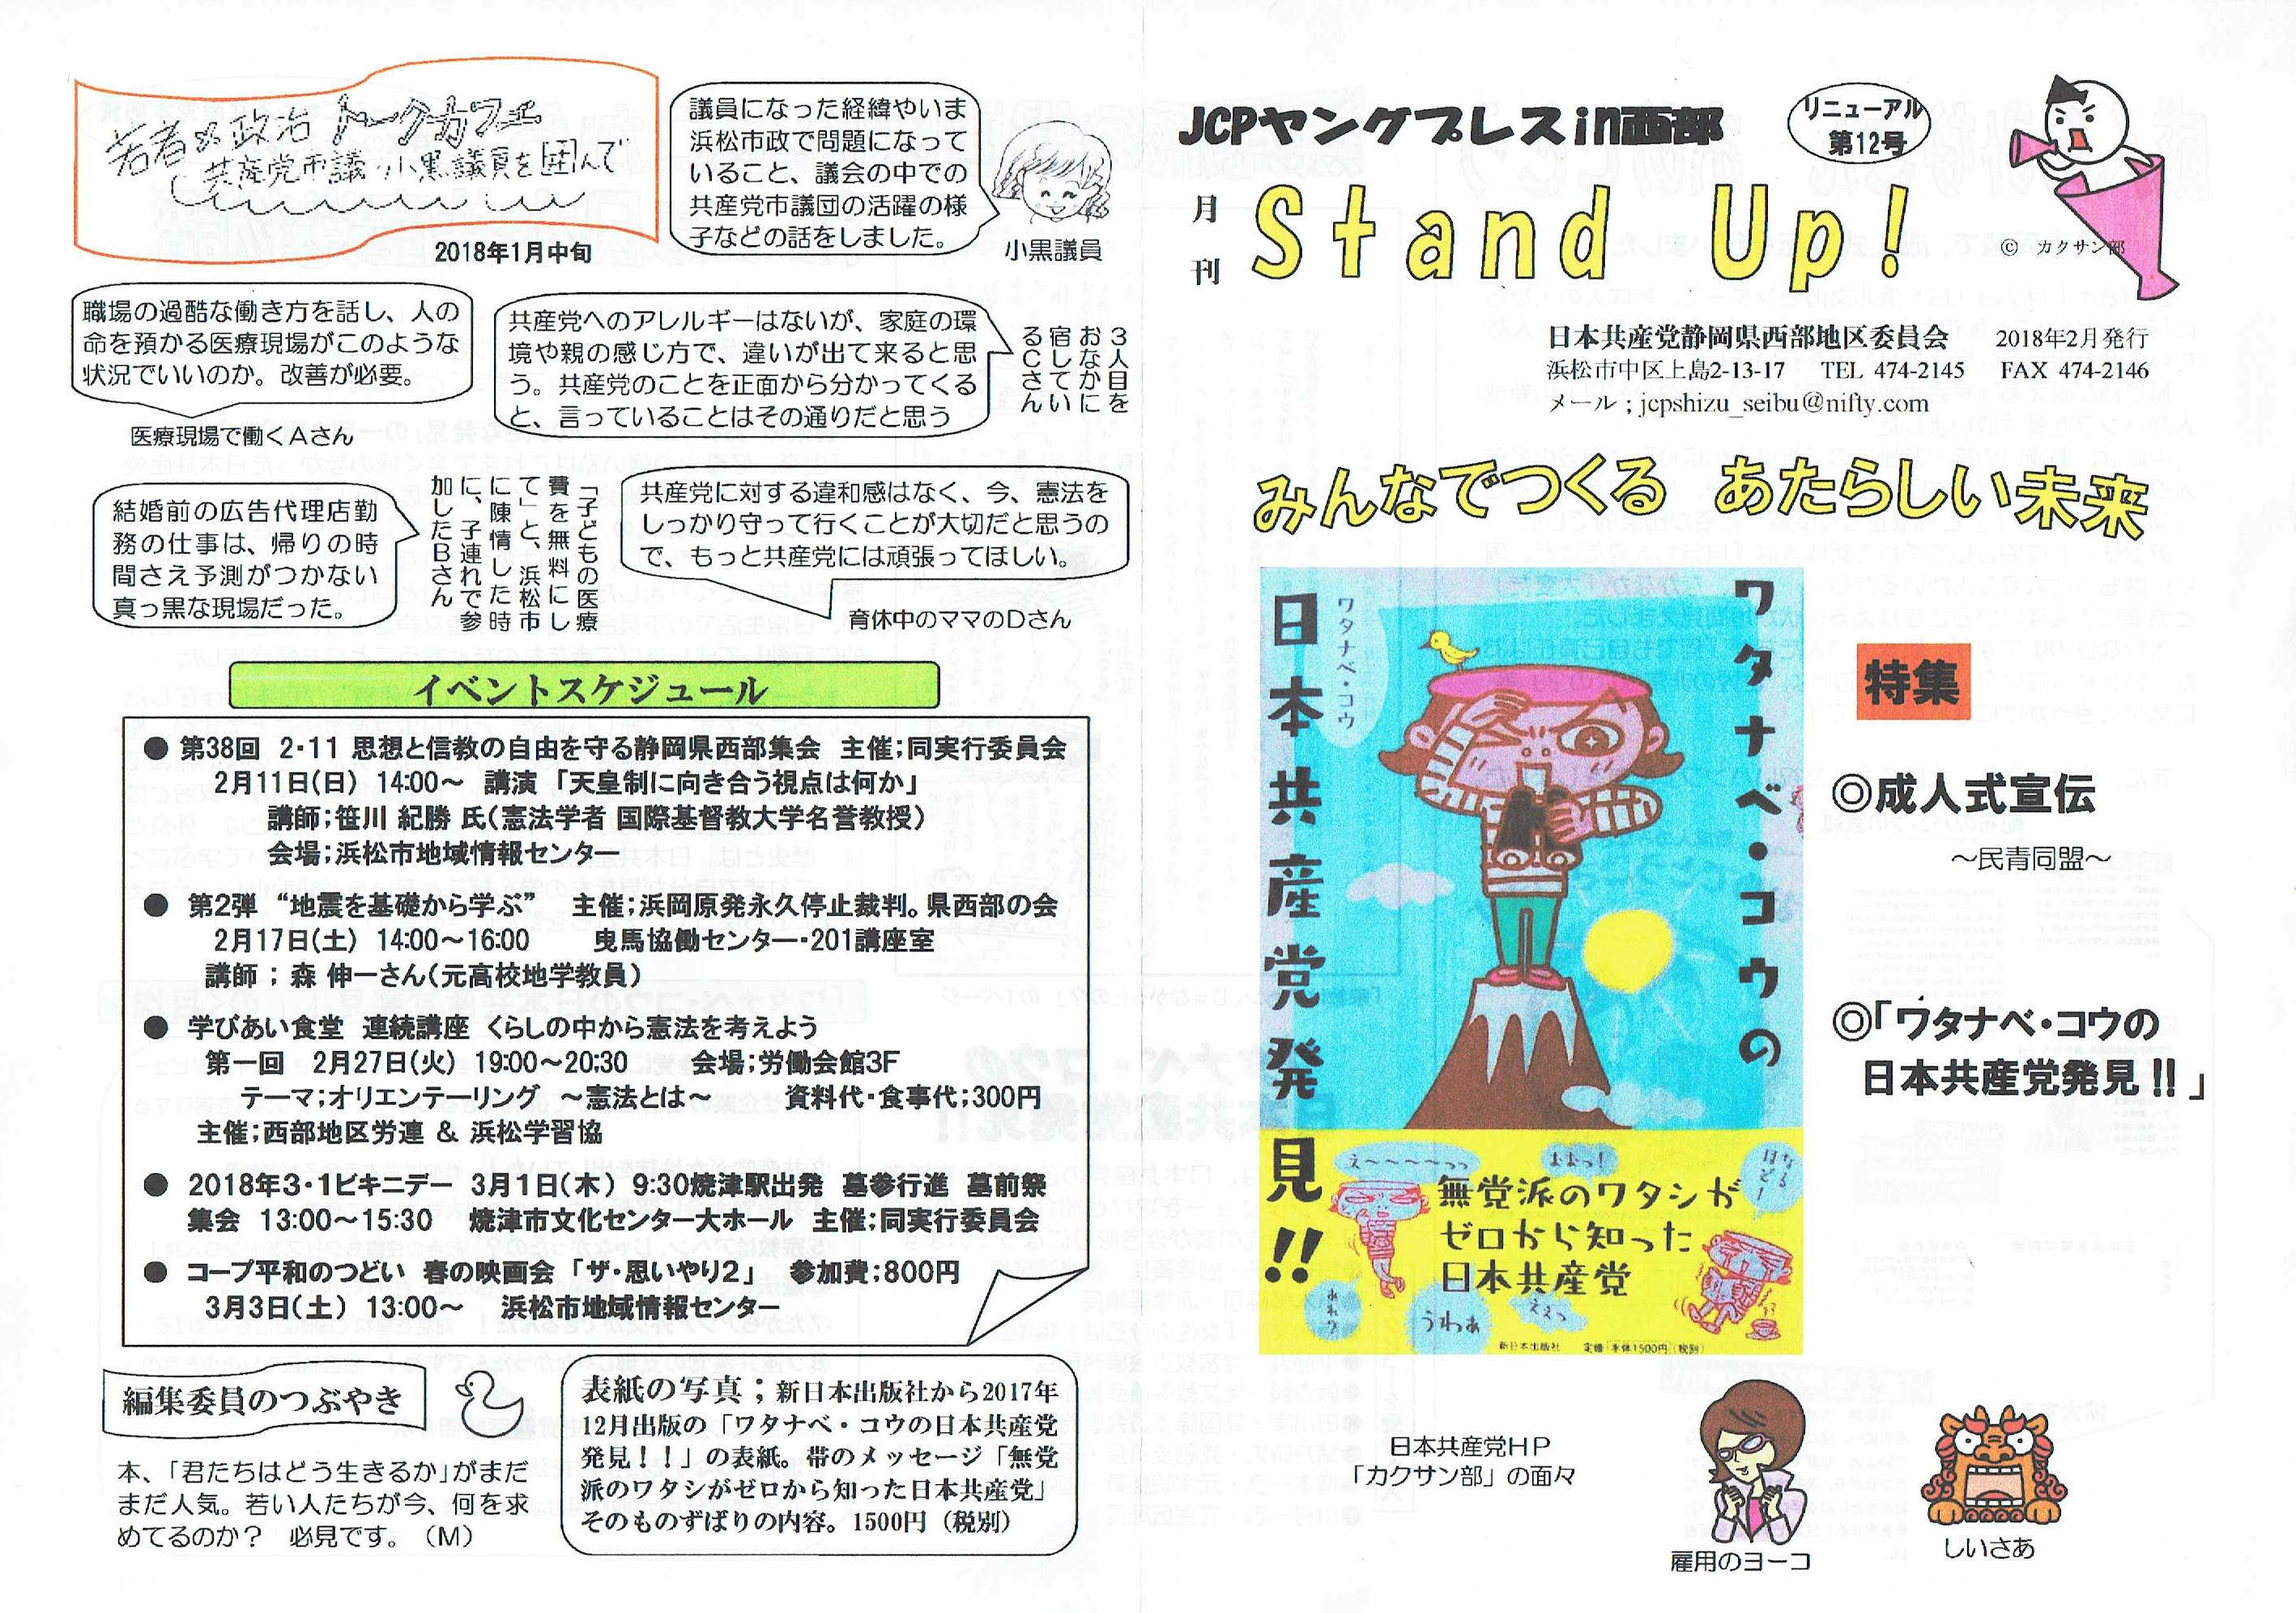 若者× 政治 トークカフェ
共産党市議・小黒議員を囲んで
2018年1月中旬
議員になった経緯やいま
浜松市政で問題になって
いること、議会の中での
共産党市議団の活躍の様
子などの話をしました。
小黒議員
職場の過酷な働き方を話し、人の
命を預かる医療現場がこのような
状況でいいのか。改善が必要。
医療現場で働くAさん
共産党へのアレルギーはないが、家庭の環
境や親の感じ方で、違いが出て来ると思
う。共産党のことを正面から分かってくる
と、言っていることはその通りだと思う
3人目を
おなかに
宿してい
るCさん
結婚前の広告代理店勤
務の仕事は、帰りの時
間さえ予測がつかない
真っ黒な現場だった。
「子どもの医療
費を無料にし
て」と、浜松市
に陳情した時
に、子連れで参
加したBさん
共産党に対する違和感はなく、今、憲法を
しっかり守って行くことが大切だと思うの
で、もっと共産党には頑張ってほしい。
育休中のママのDさん
イベントスケジュール
● 第38回 2・11 思想と信教の自由を守る静岡県西部集会 主催;同実行委員会
2月11日(日) 14:00～ 講演 「天皇制に向き合う視点は何か」
講師;笹川 紀勝 氏(憲法学者 国際基督教大学名誉教授)
会場;浜松市地域情報センター
● 第2弾 “地震を基礎から学ぶ” 主催;浜岡原発永久停止裁判。県西部の会
2月17日(土) 14:00～16:00 曳馬協働センター・201講座室
講師 ; 森 伸一さん(元高校地学教員)
● 学びあい食堂 連続講座 くらしの中から憲法を考えよう
第一回 2月27日(火) 19:00～20:30 会場;労働会館3F
テーマ;オリエンテーリング ～憲法とは～ 資料代・食事代;300円
主催;西部地区労連 & 浜松学習協
● 2018年3・1ビキニデー 3月1日(木) 9:30焼津駅出発 墓参行進 墓前祭
集会 13:00～15:30 焼津市文化センター大ホール 主催;同実行委員会
● コープ平和のつどい 春の映画会 「ザ・思いやり2」 参加費;800円
3月3日(土) 13:00～ 浜松市地域情報センター
編集委員のつぶやき
本、「君たちはどう生きるか」がまだ
まだ人気。若い人たちが今、何を求
めてるのか? 必見です。(M)
表紙の写真；新日本出版社から2017年
12月出版の「ワタナベ・コウの日本共産党
発見！！」の表紙。帯のメッセージ「無党
派のワタシがゼロから知った日本共産党」
そのものずばりの内容。1500円（税別）
JCPヤングプレスin西部
リニューアル
第12号
月刊
Stand Up!
© カクサン部
日本共産党静岡県西部地区委員会 2018年2月発行
浜松市中区上島2-13-17 TEL 474-2145 FAX 474-2146
メール；jcpshizu_seibu@nifty.com
みんなでつくる あたらしい未来
ワタナベ・コウの
日本共産党発見!!
ワタナベ・コウ
え～～～～っっ
おおっ!
なる
ほど!
無党派のワタシが
ゼロから知った
日本共産党
あれ?
うわぁ
ええっ
新日本出版社 定価 本体1500円(税別)
特集
◎成人式宣伝
～民青同盟～
◎「ワタナベ・コウの
日本共産党発見!!」
日本共産党HP
「カクサン部」の面々
雇用のヨーコ
しいさあ